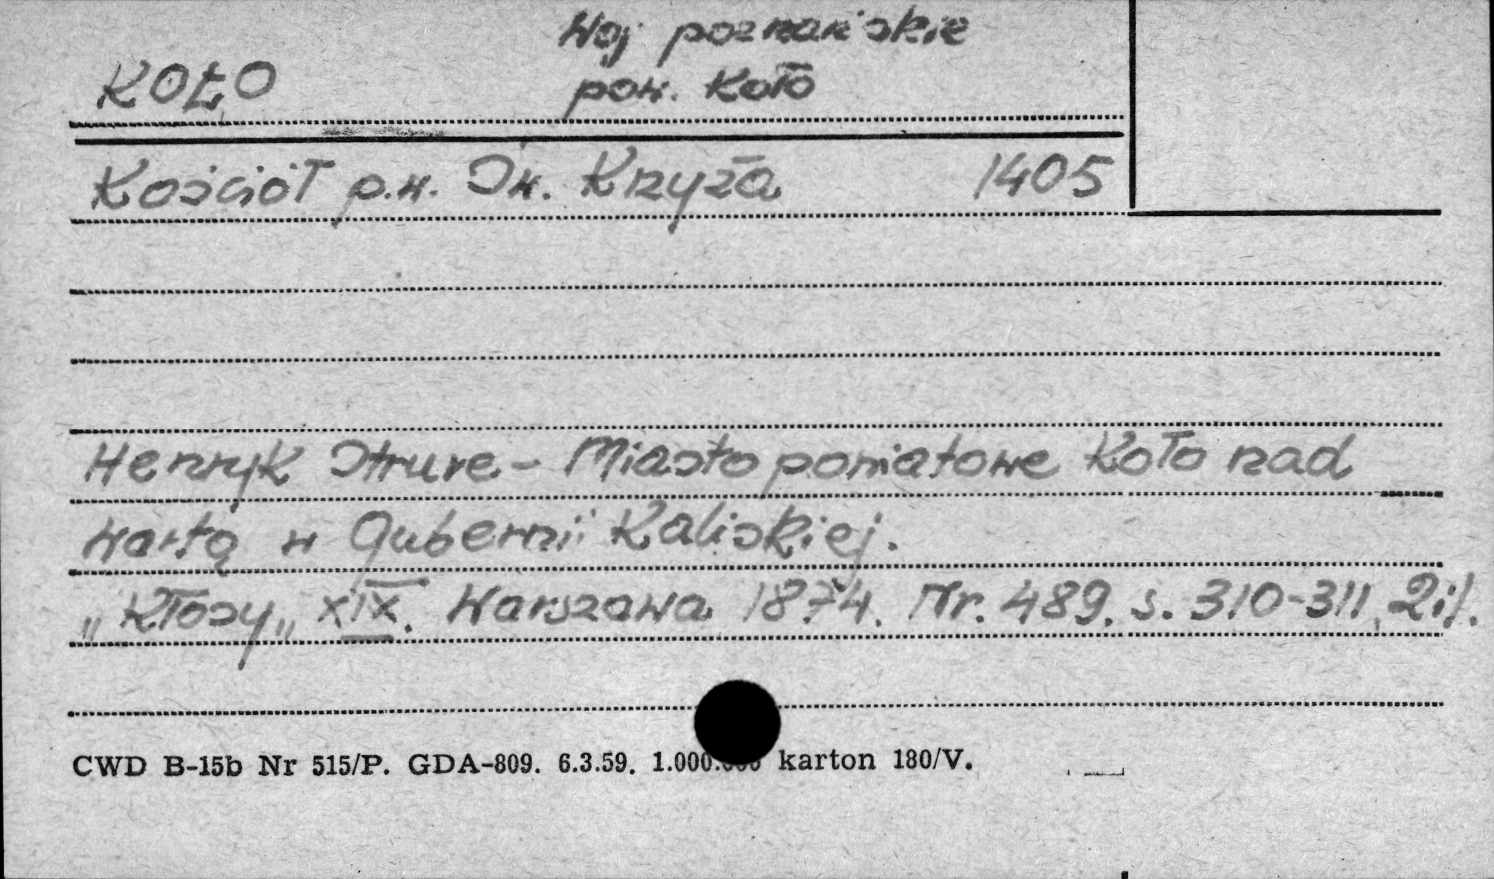 Woj poznańskie
KOŁO pow. Koło
Kościół p.w. Św. Krzyża 1405
Henryk Struve - Miasto powiatowe Koło nad
Wartą w Gubernii Kaliskiej.
„Kłosy„ XIX. Warszawa 1874. Nr. 489. s. 310-311, 2il.
CWD B-15b Nr 515/P. GDA-809. 6.3.59. 1.000.000 karton 180/V.